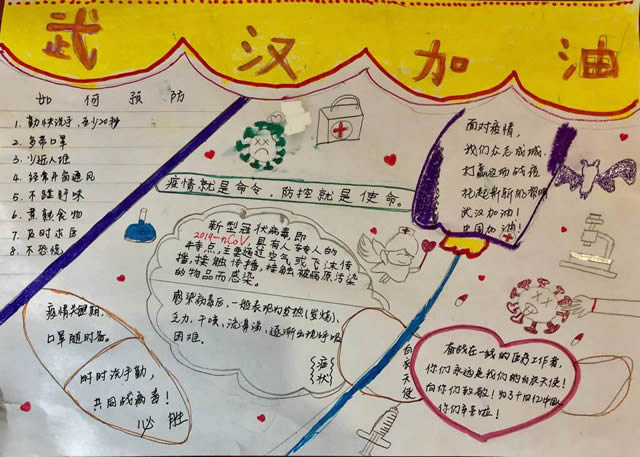 武汉加油
如何预防
1. 勤快洗手、至少20秒
2. 多带口罩
3. 少近人堆
4. 经常开窗通风
5. 不跩野味
6. 煮熟食物
7. 及时求医
8. 不恐慌
疫情就是命令，防控就是使命。
面对疫情，
我们众志成城，
打赢这场战疫
托起崭新的黎明
武汉加油！
中国加油！
新型冠状病毒即
2019-nCoV，具有人转人的
特点，主要通过空气或飞沫传
播，接触传播，接触被病原污染
的物品而感染。
感染病毒后，一般表现为发热（发烧）、
乏力、干咳、流鼻涕、逐渐出现呼吸
困难。
症状
疫情关键期，
口罩随时备。
时时洗手勤，
共同战病毒！
必胜
白衣天使
奋战在一线的医疗工作者，
你们永远是我们的白衣天使！
向你们致敬！为了十四亿中国人
你们辛苦啦！